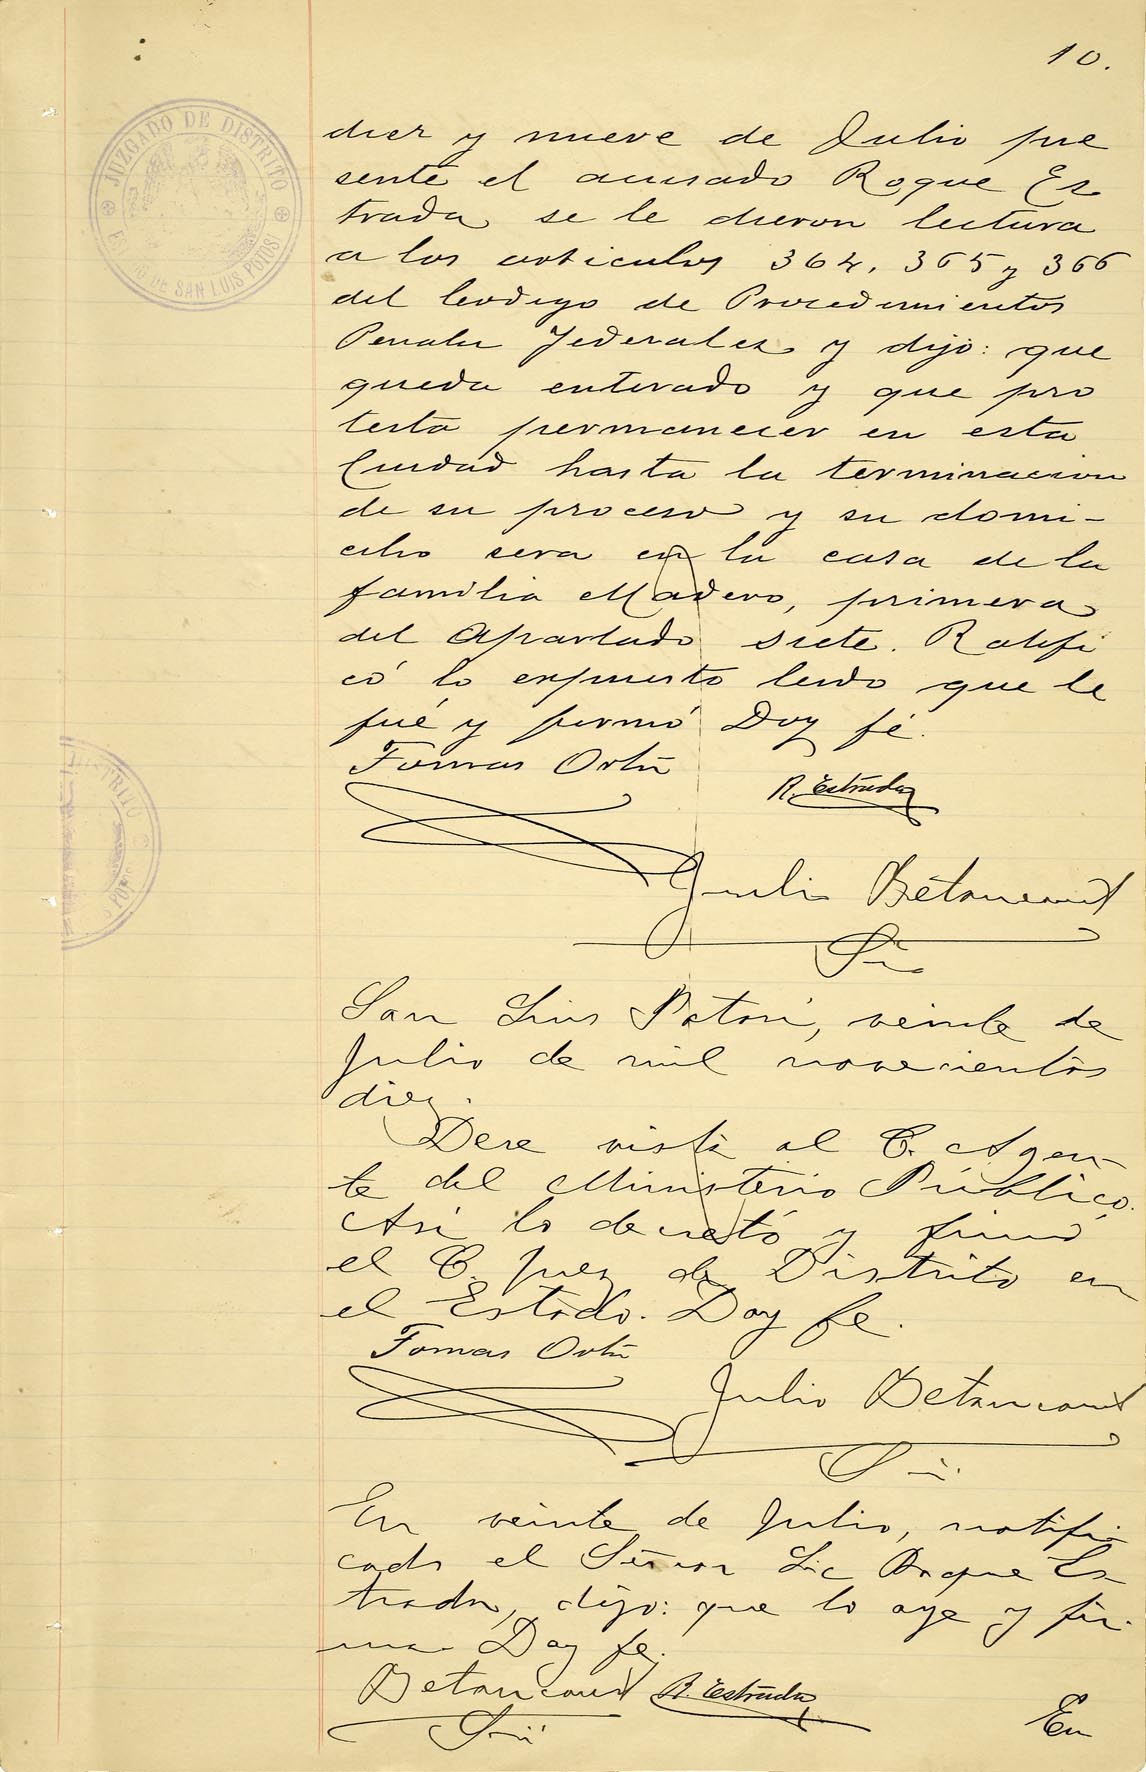 10.
JUZGADO DE DISTRITO
DE SAN LUIS POTOSI
diez y nueve de Julio pre
sente el acusado Roque Es
trada se le dieron lectura
a los articulos 364, 365 y 366
del Codigo de Procedimientos
Penales Federales y dijo: que
queda enterado y que pro
testa permanecer en esta
Ciudad hasta la terminacion
de su proceso y su domi-
cilio sera en la casa de la
familia Madero, primera
del Apartado siete. Ratifi
có lo expuesto leido que le
fué y firmó Doy fé.
Tomas Ortiz
R. Estrada
Julio Betancourt
Srio
San Luis Potosí, veinte de
Julio de mil novecientos
diez.
Dese vista al C. Agen-
te del Ministerio Público.
Así lo decretó y firmó
el C. Juez de Distrito en
el Estado. Doy fe.
Tomas Ortiz
Julio Betancourt
Srio
En veinte de Julio, notifi-
cado el Señor Lic Roque Es-
trada, dijo: que lo oye y fir-
ma. Doy fe.
Betancourt R. Estrada
Srio
En
DISTRITO